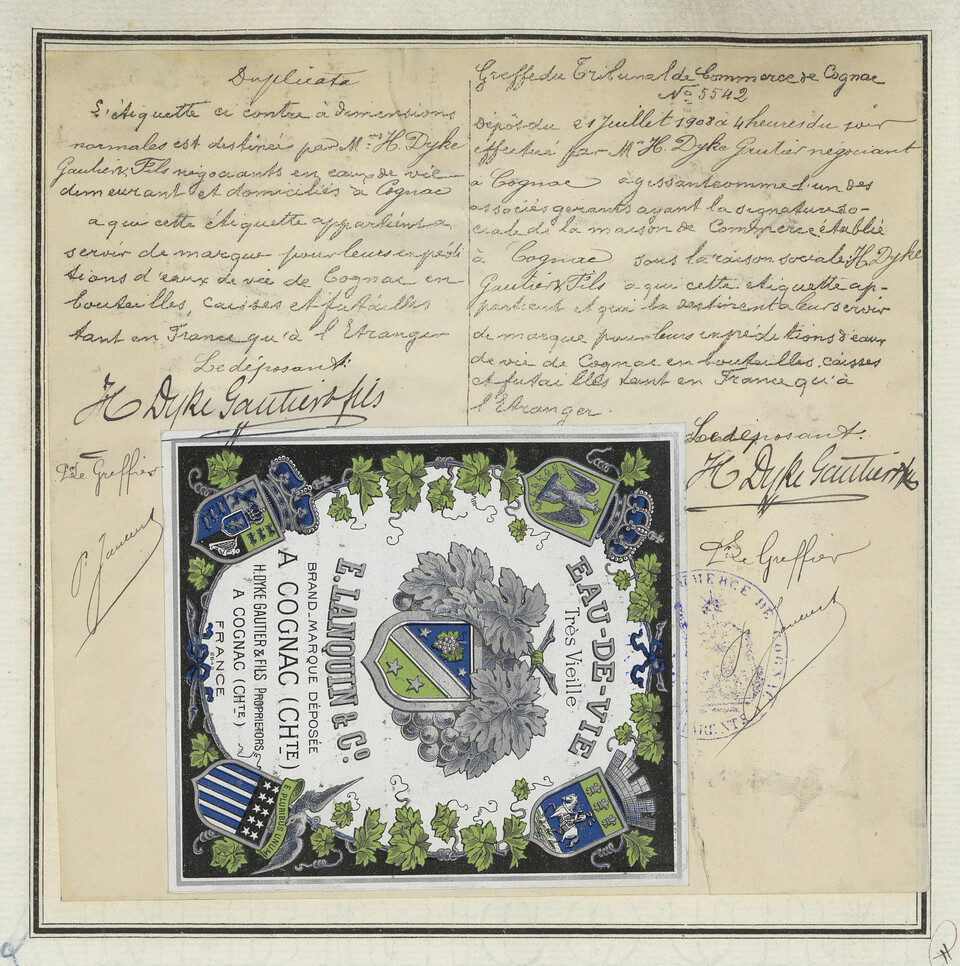 Duplicata
L'étiquette ci contre à dimensions
normales est destinée par Mrs H. Dyke
Gautier & Fils négociants en eaux de vie
demeurant et domiciliés à Cognac
a qui cette étiquette appartient a
servir de marque pour leurs expédi
tions d'eaux de vie de Cognac en
bouteilles, caisses et futailles
tant en France qu'à l'Etranger
Le déposant:
H Dyke Gautier & fils
Pr Le Greffier
Greffe du Tribunal de Commerce de Cognac
No 5542
Dépôt du 21 Juillet 1908 à 4 heures du soir
effectué par Mr H. Dyke Gautier négociant
à Cognac agissant comme l'un des
associés gérants ayant la signature so-
ciale de la maison de Commerce établie
à Cognac sous la raison sociale: H. Dyke
Gautier & Fils a qui cette étiquette ap-
partient et qui la destinent a leur servir
de marque pour leurs expéditions d'eaux
de vie de Cognac en bouteilles, caisses
et futailles tant en France qu'à
l'Etranger.
Le déposant:
H Dyke Gautier & fils
Pr Le Greffier
COMMERCE DE COGNAC
EAU-DE-VIE
Très Vieille
E. LANQUIN & Co.
BRAND-MARQUE DÉPOSÉE
A COGNAC (CHTE)
H. DYKE GAUTIER & FILS PROPRIERORS
A COGNAC (CHTE)
FRANCE
E PLURIBUS UNUM